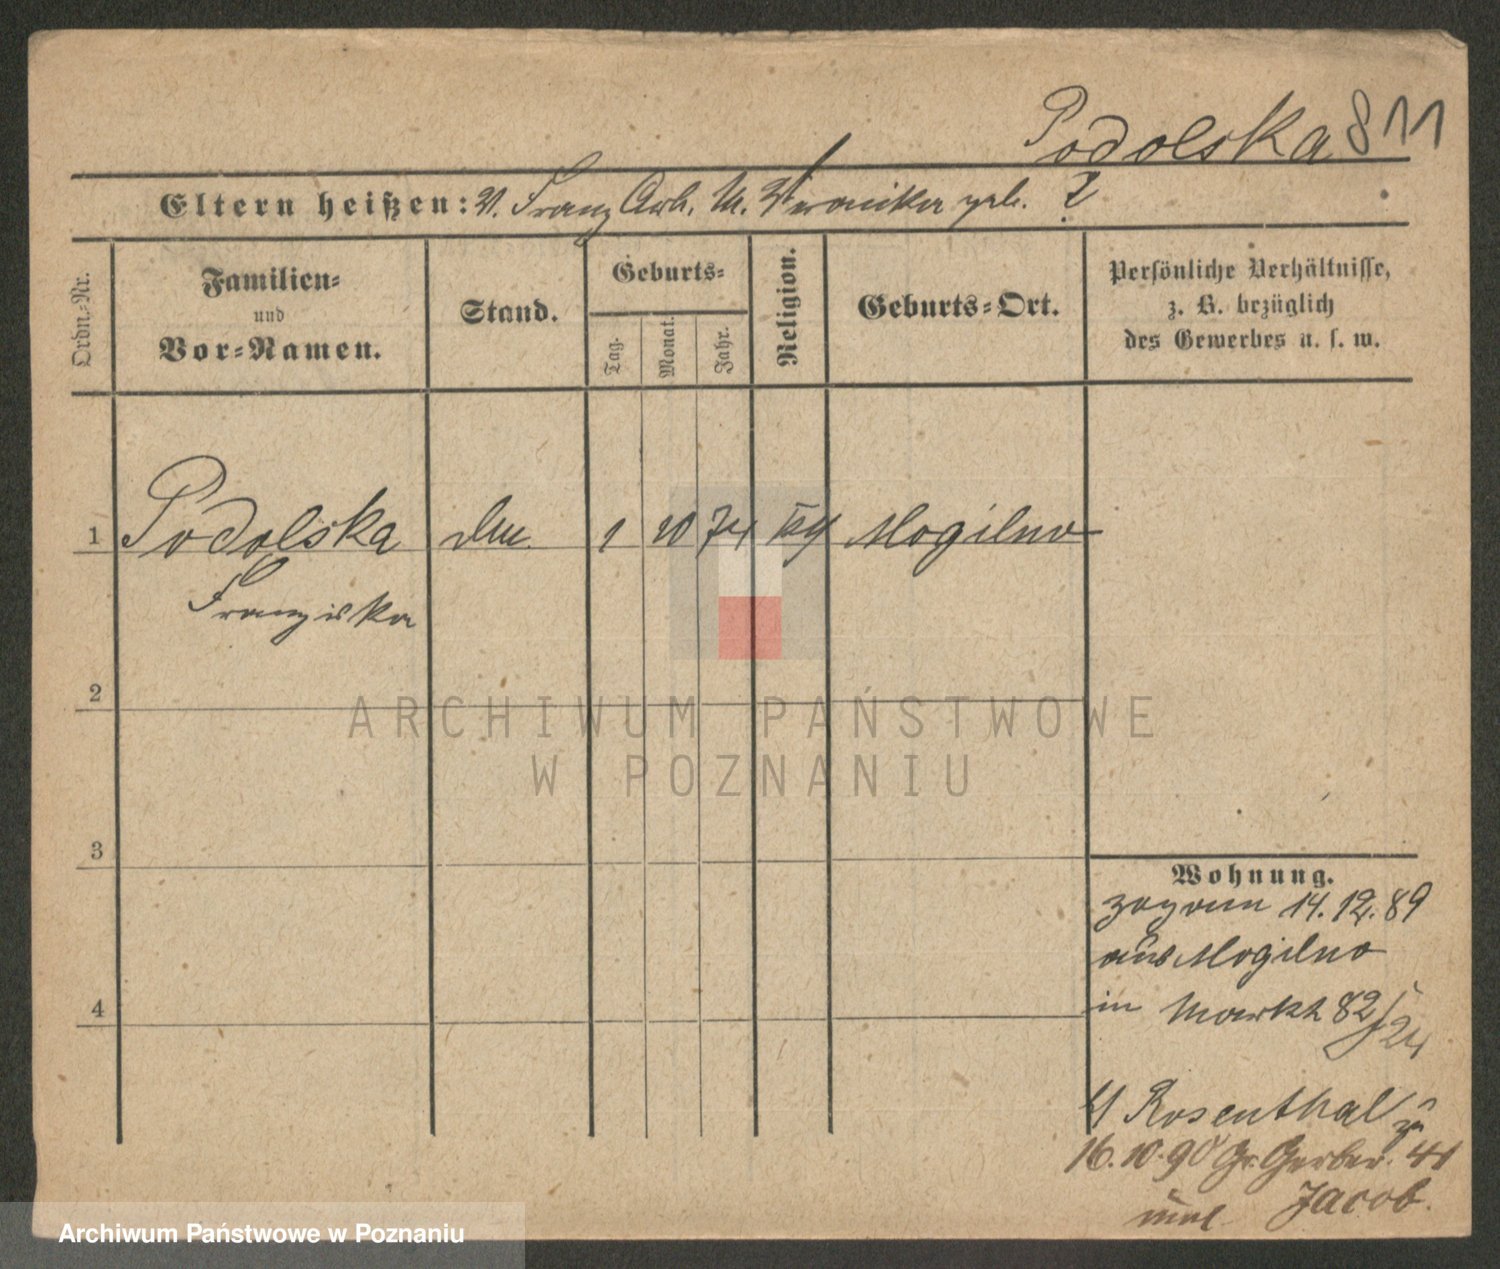 Podolska 811
Eltern heißen: V. Franz Arb. M. Veronika geb. ?
Ordn.-Nr.
Familien-
und
Vor-Namen.
Stand.
Geburts-
Tag.
Monat.
Jahr.
Religion.
Geburts-Ort.
Persönliche Verhältnisse,
z. B. bezüglich
des Gewerbes u. s. w.
1 Podolska 1 10 74 Mogilno
Franziska
2
3
4
Wohnung.
14.12.89
aus Mogilno
in Markt 82/24
Rosenthal
16.10.90 Gr. Gerber. 41
Jacob.
ARCHIWUM PAŃSTWOWE
W POZNANIU
Archiwum Państwowe w Poznaniu